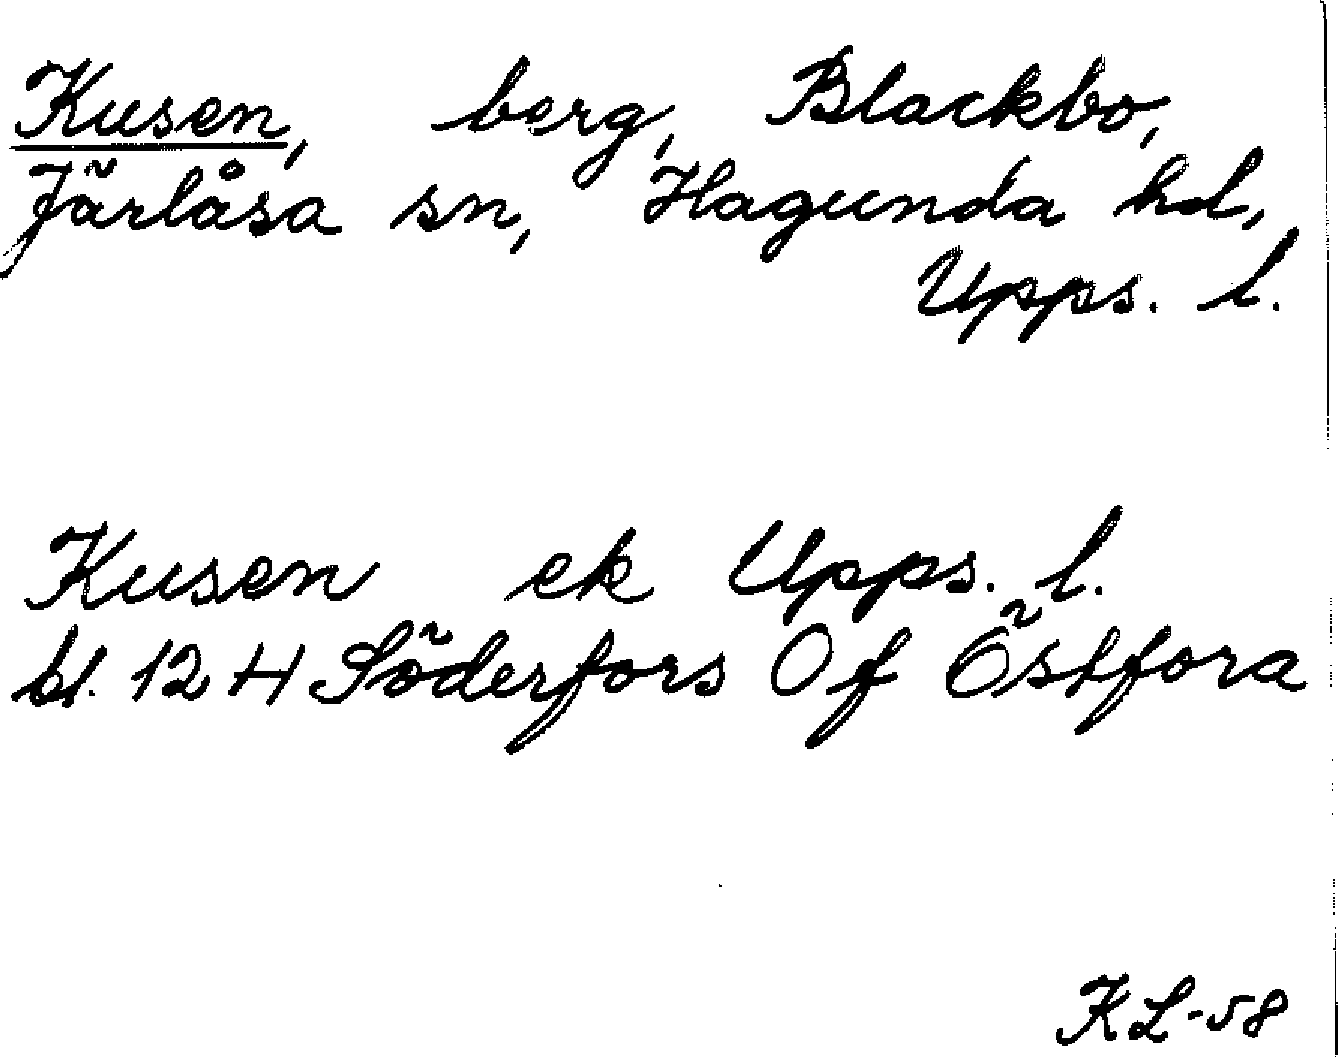 Kusen, berg, Blackbo,
Järlåsa sn, Hagunda hd,
Upps. l.
Kusen ek Upps. l.
bl. 12 H Söderfors Of Östfora
KL-58